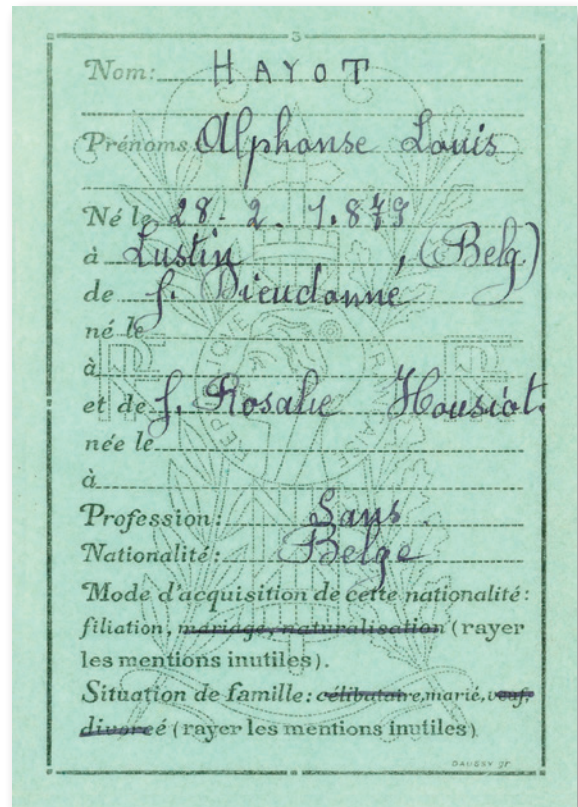 3
Nom: HAYOT
Prénoms Alphonse Louis
Né le 28-2.1.879
à Lustin, (Belg)
de f. Dieudonné
né le
à
et de f. Rosalie Housiot.
née le
à
Profession: Sans.
Nationalité: Belge
Mode d'acquisition de cette nationalité:
filiation, mariage, naturalisation (rayer
les mentions inutiles).
Situation de famille: célibataire, marié, veuf,
divorcé (rayer les mentions inutiles)
RÉPUBLIQUE FRANÇAISE
RF
RF
DAUSSY gr